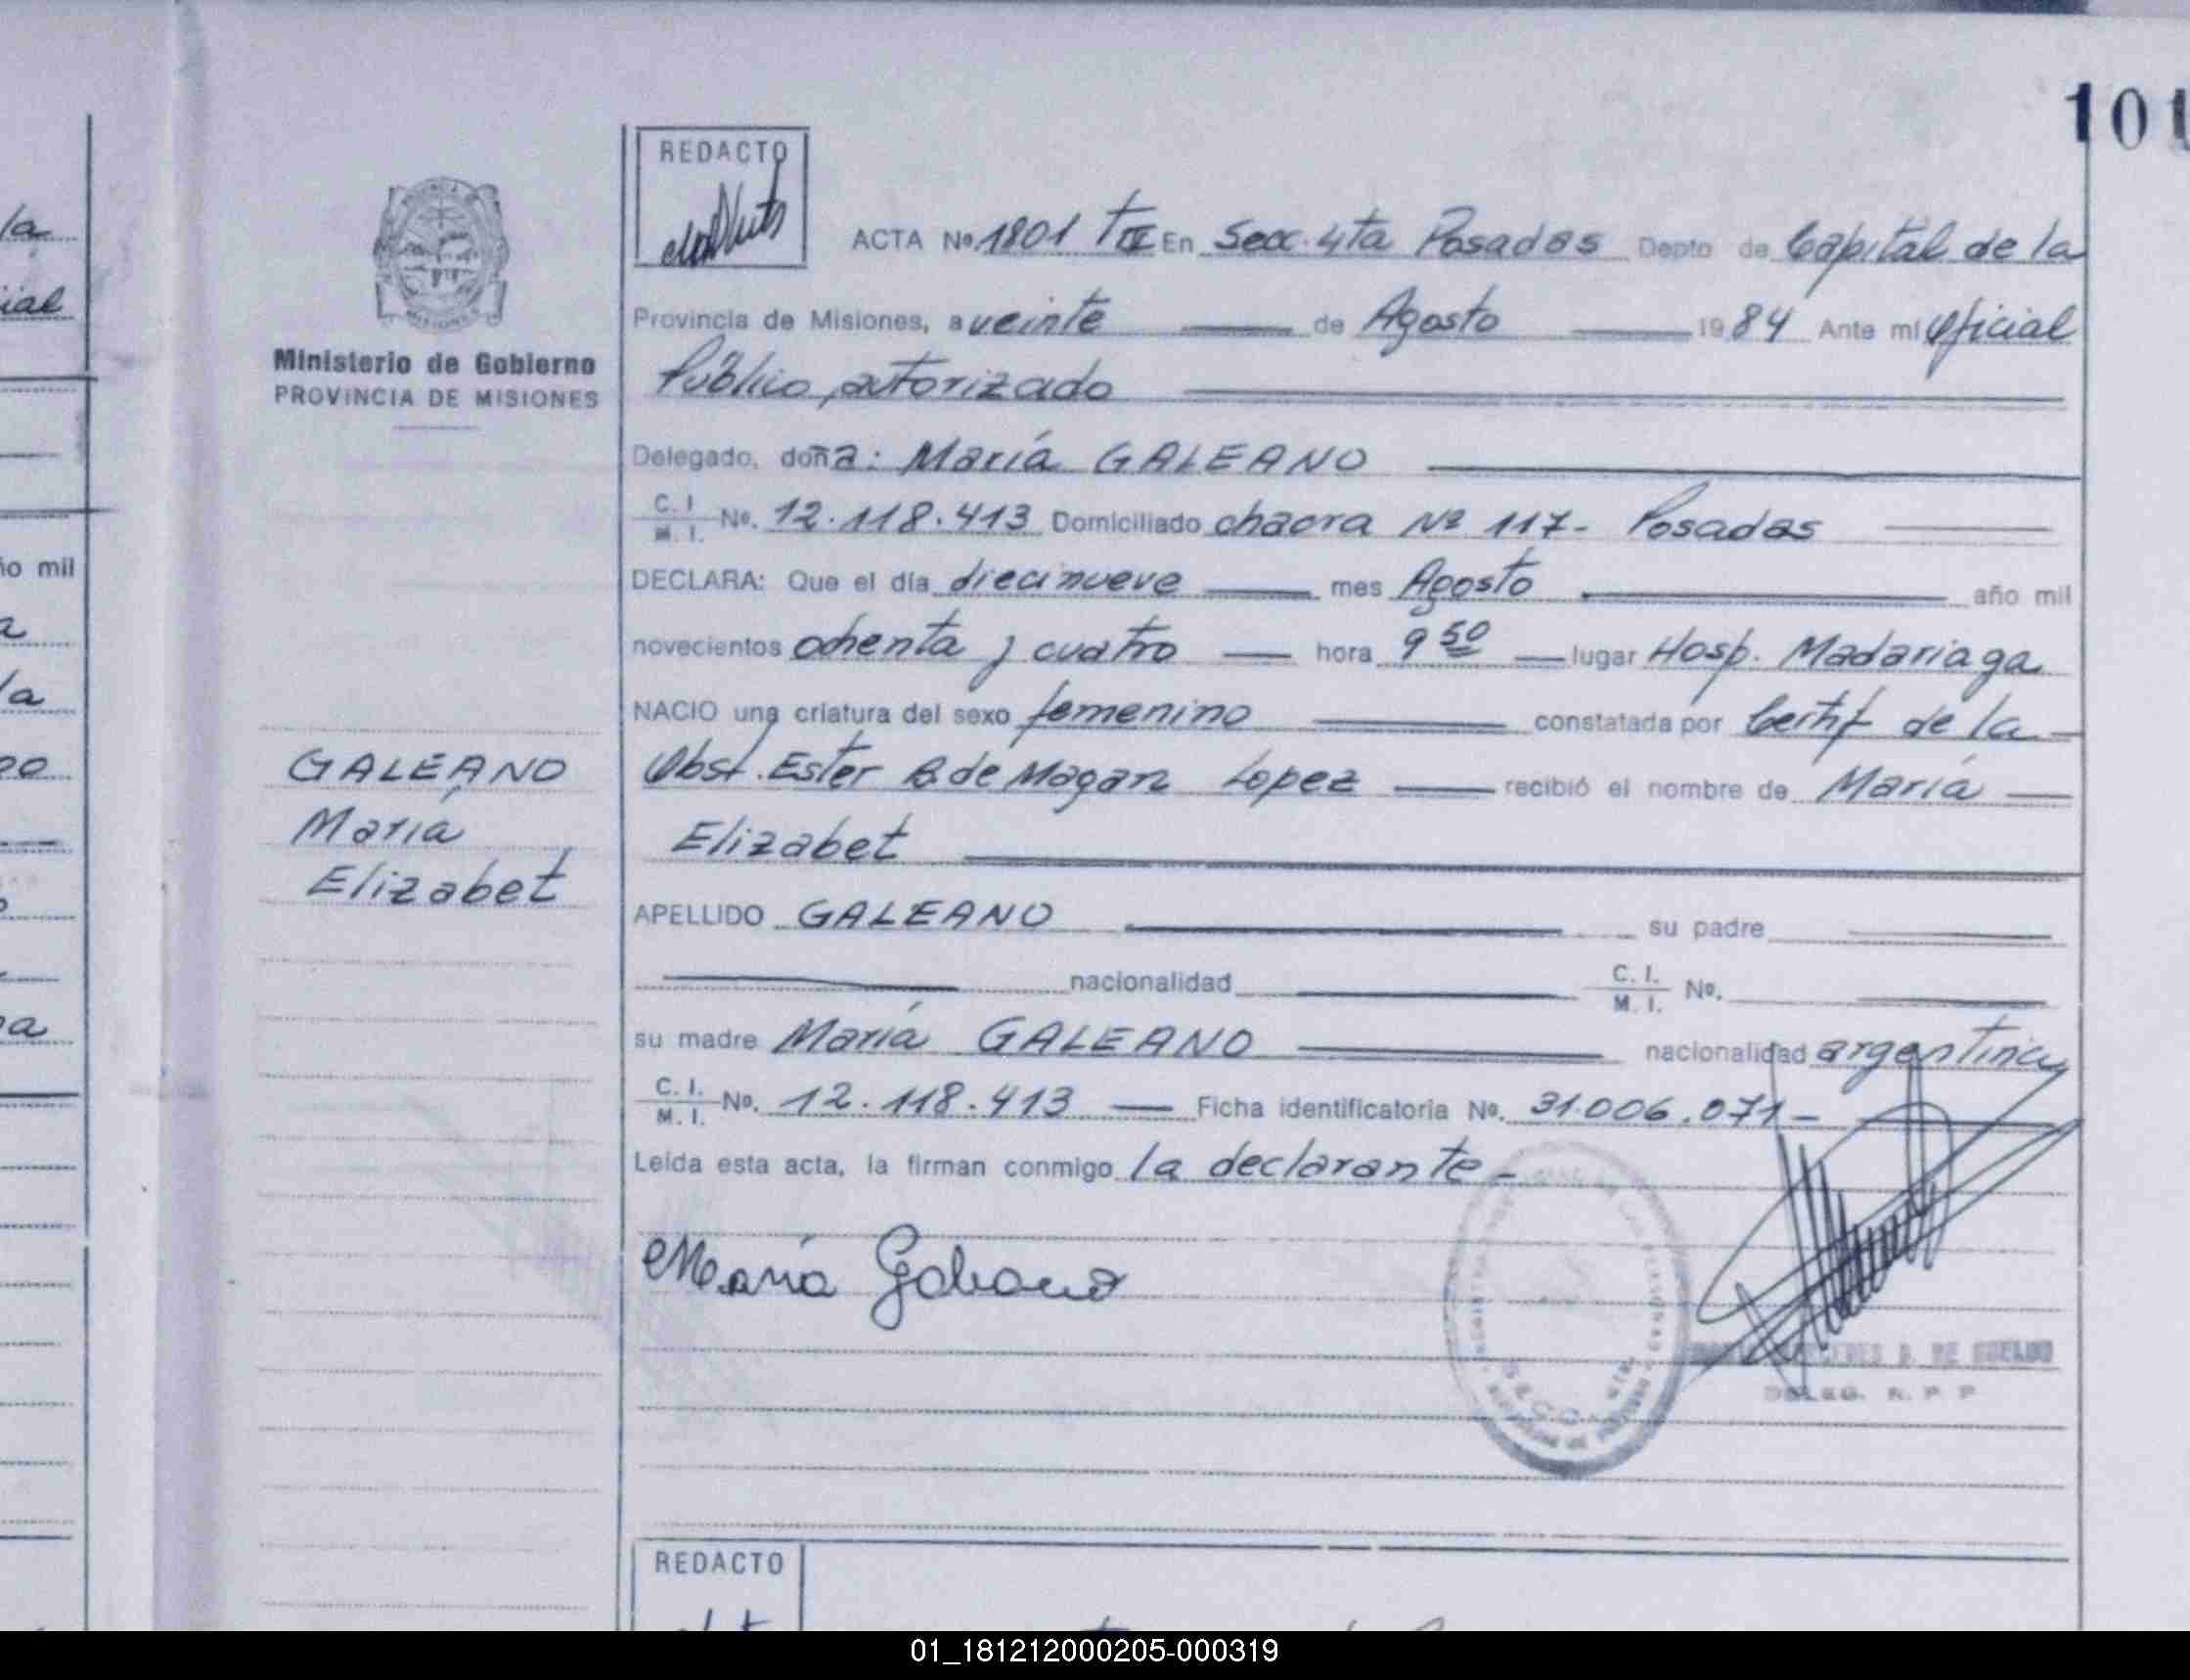 101
REDACTO
ACTA Nº 1801 TIII En Secc. 4ta Posadas Depto de Capital de la
Provincia de Misiones, a veinte de Agosto 1984 Ante mi Oficial
Público autorizado
Ministerio de Gobierno
PROVINCIA DE MISIONES
Delegado, doña: María GALEANO
C. I. M. I. Nº. 12.118.413 Domiciliado chacra Nº 117- Posadas
DECLARA: Que el día diecinueve mes Agosto año mil
novecientos ochenta y cuatro hora 9 50 lugar Hosp. Madariaga
NACIO una criatura del sexo femenino constatada por Certif de la
Obst. Ester B. de Magan Lopez recibió el nombre de María
Elizabet
GALEANO
María
Elizabet
APELLIDO GALEANO su padre
nacionalidad C. I. M. I. Nº.
su madre María GALEANO nacionalidad argentina
C. I. M. I. Nº. 12.118.413 Ficha identificatoria Nº. 31.006.071-
Leída esta acta, la firman conmigo la declarante-
María Galeano
DELEG. R. P. P
REDACTO
la
ial
ño mil
a
la
na
01_181212000205-000319